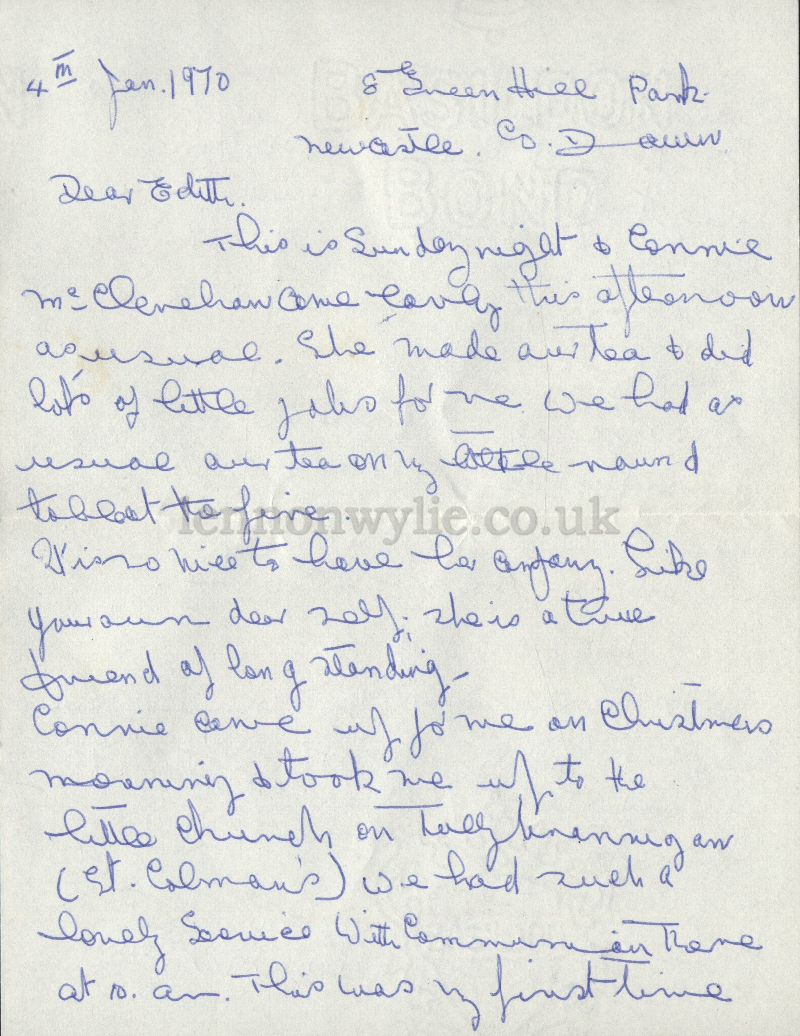 4th Jan. 1970 8 Green Hill Park.
Newcastle. Co. Down
Dear Edith.
This is Sunday night & Connie
McClenehan came early this afternoon
as usual. She made our tea & did
lots of little jobs for me. We had as
usual our tea on my little round
table at to five.
It is so nice to have her company. Like
your own dear self, she is a true
friend of long standing.
Connie came up for me on Christmas
morning & took me up to the
little Church on Tullybrannigan
(St. Colman's) we had such a
lovely Service With Communion there
at 10. am. This was my first time
lennonwylie.co.uk
BASILDON
BOND